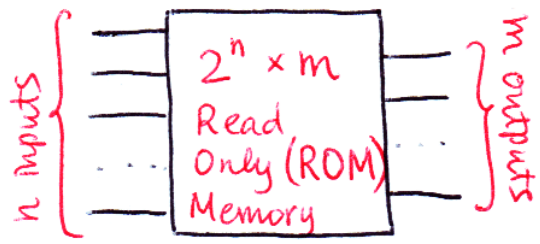 n inputs
2ⁿ × m
Read
Only (ROM)
Memory
m outputs